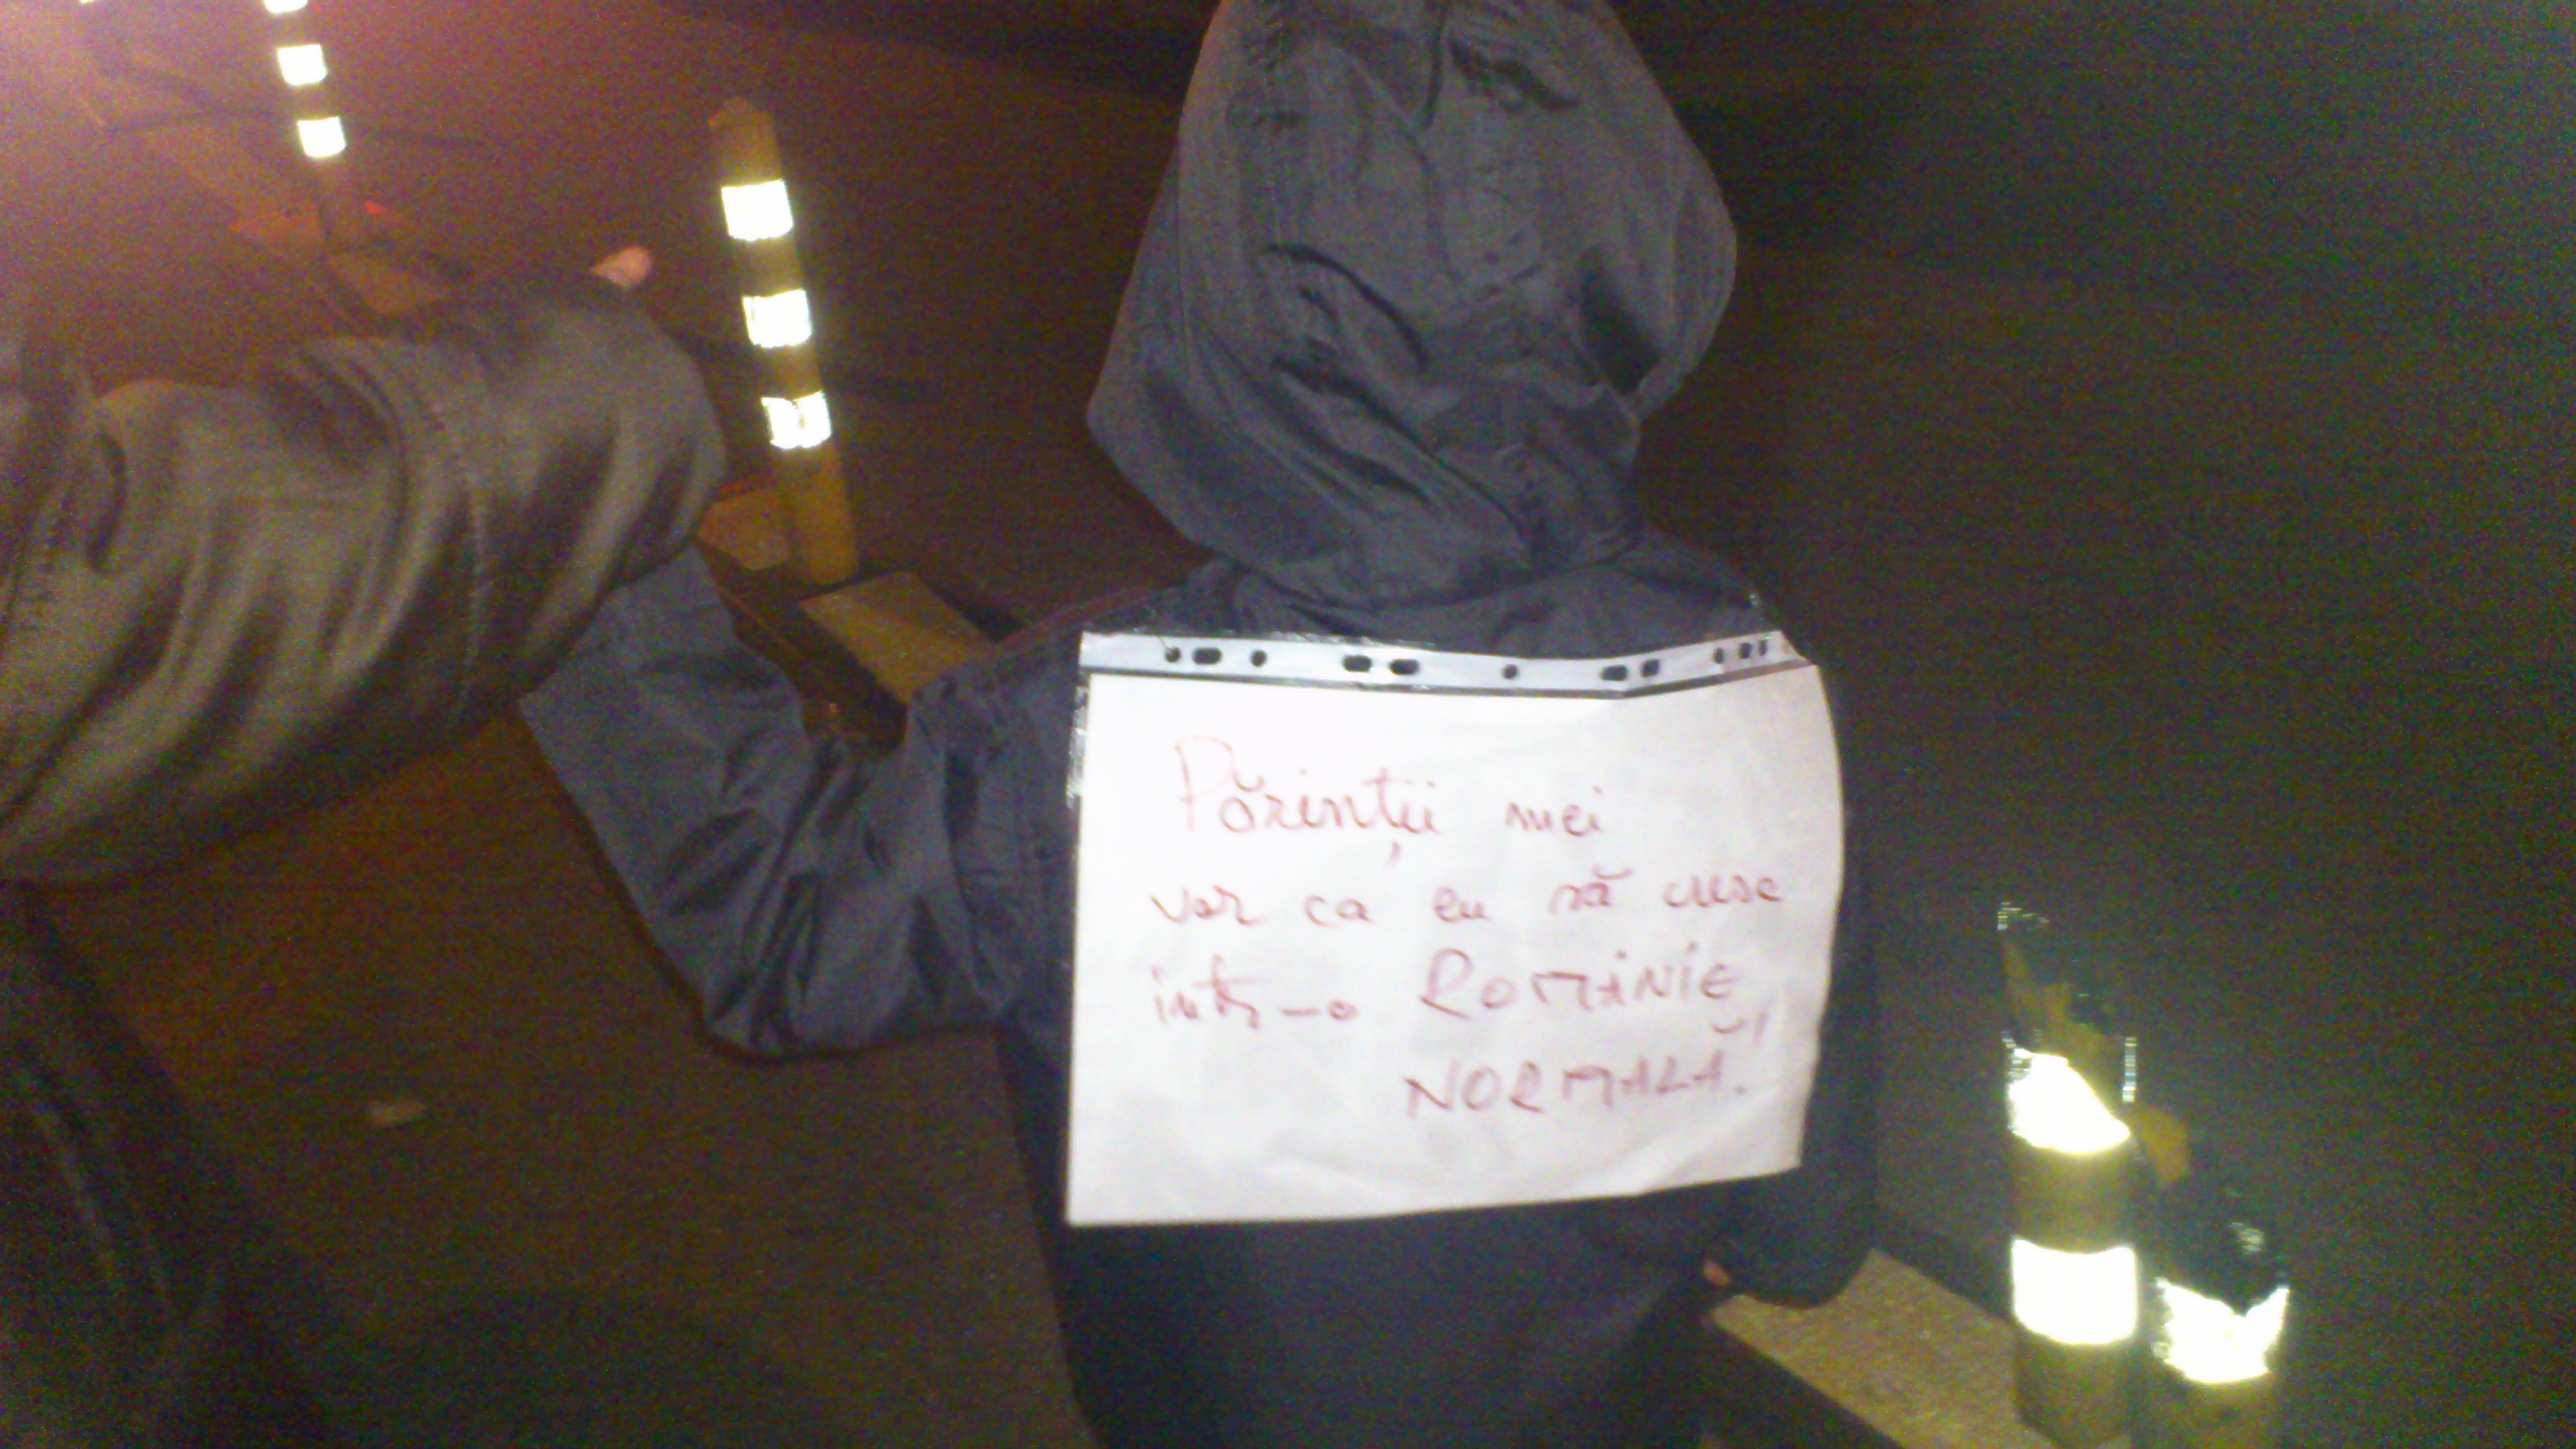 Părinții mei
vor ca eu să cresc
într-o ROMÂNIE
NORMALĂ!